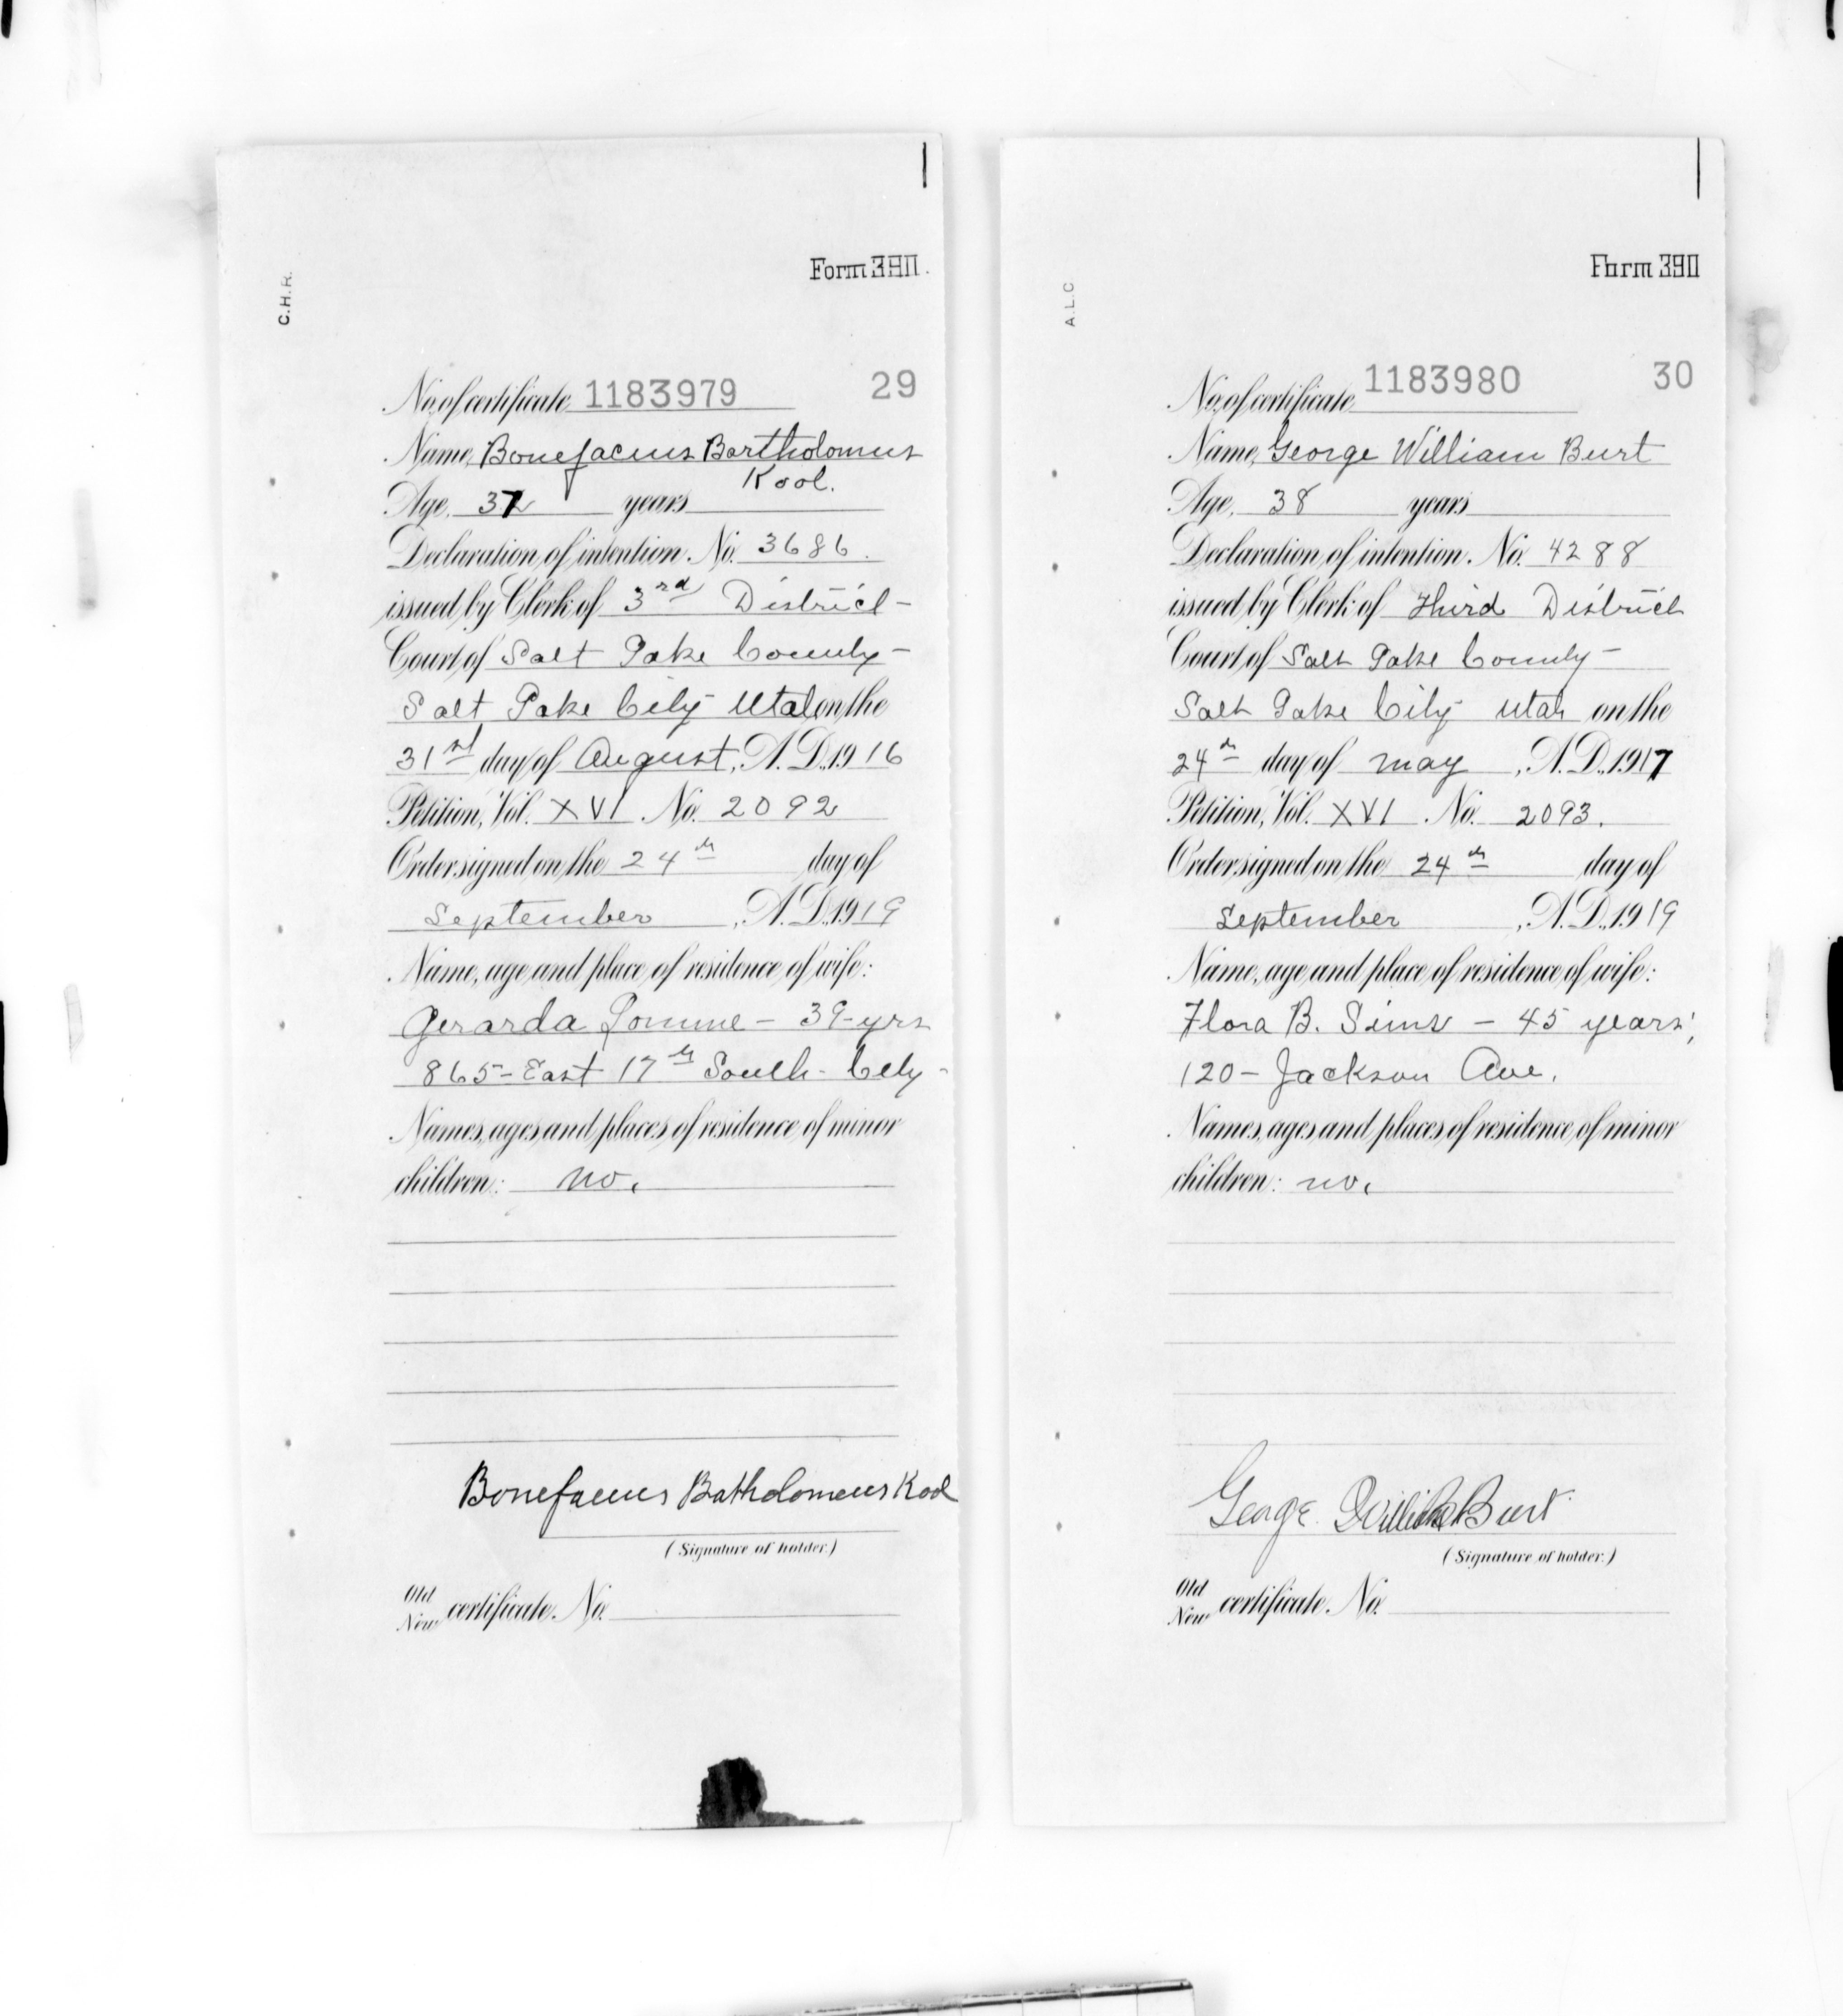 C.H.R.
Form 390.
No. of certificate 1183979 29
Name, Bonefacius Bartholomus
Kool.
Age, 37 years
Declaration of intention. No. 3686.
issued by Clerk of 3rd District -
Court of Salt Lake County -
Salt Lake City Utah on the
31st day of August, A.D., 1916
Petition, Vol. XVI. No. 2092
Order signed on the 24th day of
September, A.D., 1919
Name, age and place of residence of wife:
Gerarda - 39 yrs
865 - East 17th South - City -
Names, ages and places of residence of minor
children: no.
Bonefacius Batholomeus Kool
(Signature of holder.)
Old
New certificate. No.
A.L.C
Form 390
No. of certificate 1183980 30
Name, George William Burt
Age, 38 years
Declaration of intention. No. 4288
issued by Clerk of Third District
Court of Salt Lake County -
Salt Lake City Utah on the
24th day of May, A.D., 1917
Petition, Vol. XVI. No. 2093.
Order signed on the 24th day of
September, A.D., 1919
Name, age and place of residence of wife:
Flora B. Sims - 45 years;
120 - Jackson Ave.
Names, ages and places of residence of minor
children: no.
George William Burt
(Signature of holder.)
Old
New certificate. No.